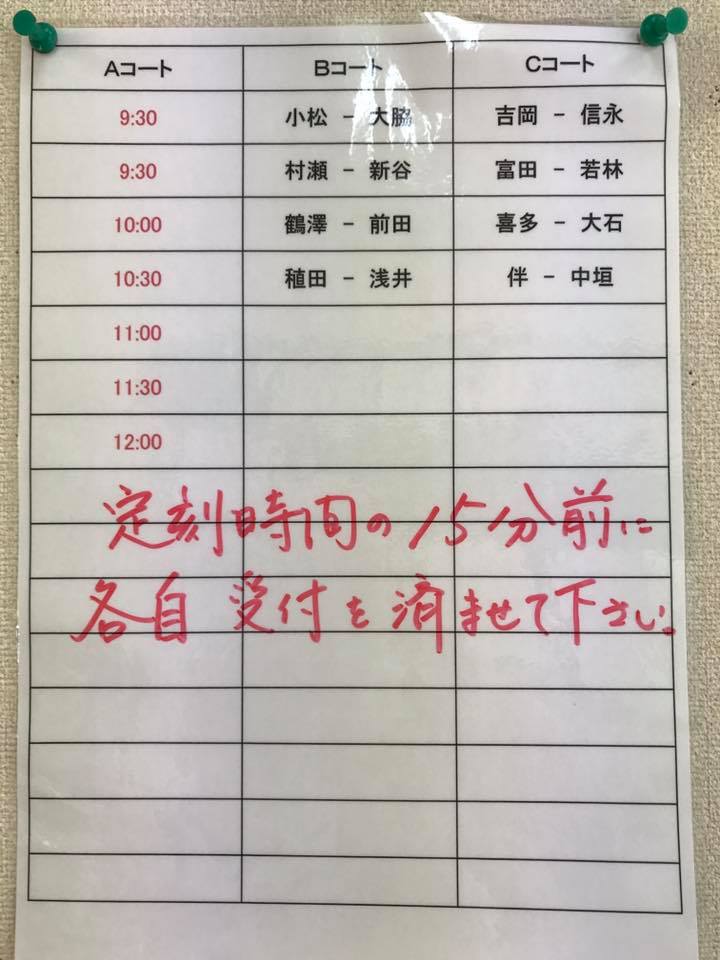 Aコート Bコート Cコート
9:30 小松 － 大脇 吉岡 － 信永
9:30 村瀬 － 新谷 富田 － 若林
10:00 鶴澤 － 前田 喜多 － 大石
10:30 稙田 － 浅井 伴 － 中垣
11:00
11:30
12:00
定刻時間の15分前に
各自 受付を済ませて下さい。